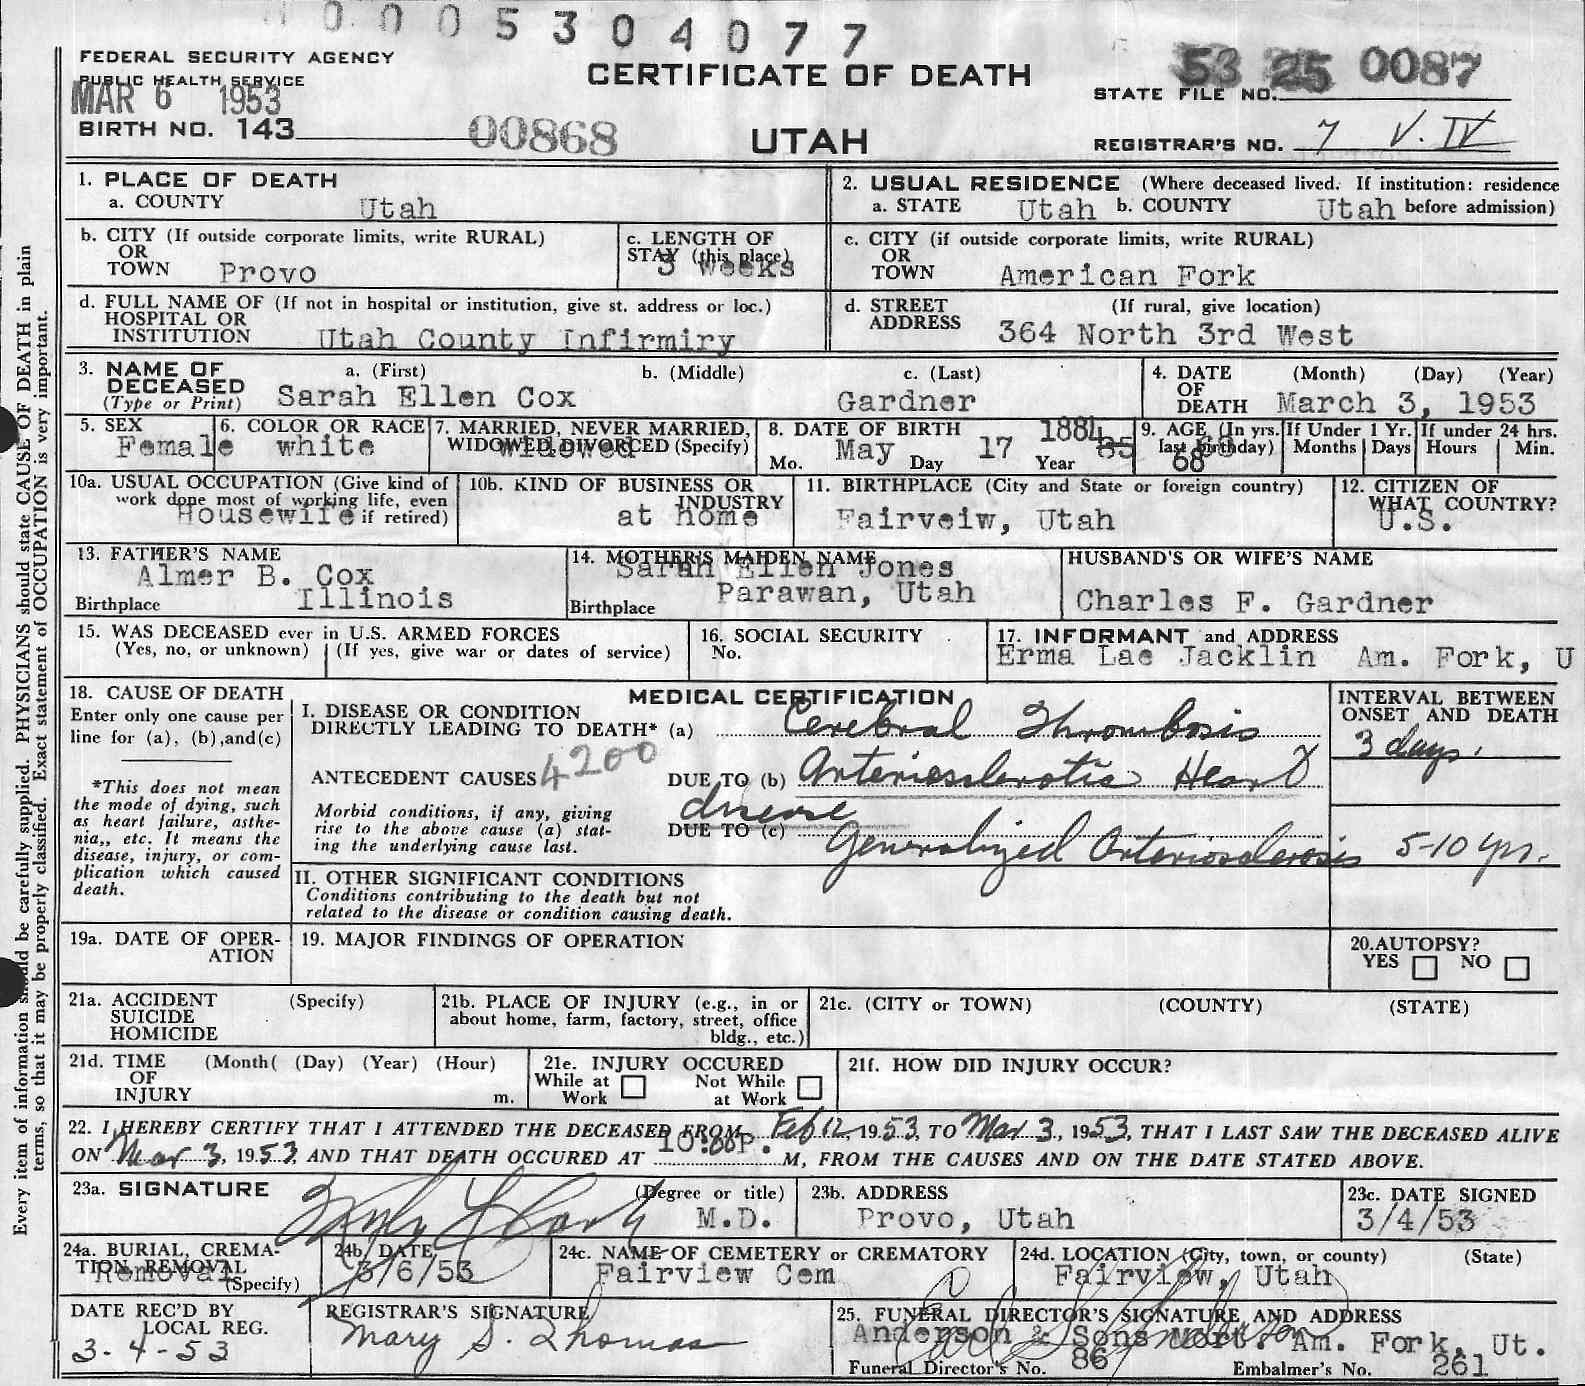 0005304077
FEDERAL SECURITY AGENCY
PUBLIC HEALTH SERVICE
MAR 6 1953
BIRTH NO. 143
00868
CERTIFICATE OF DEATH
UTAH
53 25 0087
STATE FILE NO.
REGISTRAR'S NO. 7 V. IV
Every item of information should be carefully supplied. PHYSICIANS should state CAUSE OF DEATH in plain
terms, so that it may be properly classified. Exact statement of OCCUPATION is very important.
1. PLACE OF DEATH
a. COUNTY Utah
2. USUAL RESIDENCE (Where deceased lived. If institution: residence
a. STATE Utah b. COUNTY Utah before admission)
b. CITY (If outside corporate limits, write RURAL)
OR
TOWN Provo
c. LENGTH OF
STAY (this place)
3 weeks
c. CITY (if outside corporate limits, write RURAL)
OR
TOWN American Fork
d. FULL NAME OF (If not in hospital or institution, give st. address or loc.)
HOSPITAL OR
INSTITUTION Utah County Infirmiry
d. STREET (If rural, give location)
ADDRESS 364 North 3rd West
3. NAME OF a. (First) b. (Middle) c. (Last)
DECEASED
(Type or Print) Sarah Ellen Cox Gardner
4. DATE (Month) (Day) (Year)
OF
DEATH March 3, 1953
5. SEX
Female
6. COLOR OR RACE
white
7. MARRIED, NEVER MARRIED,
WIDOWED, DIVORCED (Specify)
widowed
8. DATE OF BIRTH 1884
Mo. May Day 17 Year 85
9. AGE (In yrs.
last birthday)
68
If Under 1 Yr.
Months Days
If under 24 hrs.
Hours Min.
10a. USUAL OCCUPATION (Give kind of
work done most of working life, even
if retired)
Housewife
10b. KIND OF BUSINESS OR
INDUSTRY
at home
11. BIRTHPLACE (City and State or foreign country)
Fairveiw, Utah
12. CITIZEN OF
WHAT COUNTRY?
U.S.
13. FATHER'S NAME
Almer B. Cox
Birthplace Illinois
14. MOTHER'S MAIDEN NAME
Sarah Ellen Jones
Birthplace Parawan, Utah
HUSBAND'S OR WIFE'S NAME
Charles F. Gardner
15. WAS DECEASED ever in U.S. ARMED FORCES
(Yes, no, or unknown) (If yes, give war or dates of service)
16. SOCIAL SECURITY
No.
17. INFORMANT and ADDRESS
Erma Lae Jacklin Am. Fork, U
18. CAUSE OF DEATH
Enter only one cause per
line for (a), (b),and(c)
*This does not mean
the mode of dying, such
as heart failure, asthe-
nia,, etc. It means the
disease, injury, or com-
plication which caused
death.
MEDICAL CERTIFICATION
I. DISEASE OR CONDITION
DIRECTLY LEADING TO DEATH* (a) Cerebral Thrombosis
ANTECEDENT CAUSES 4200 DUE TO (b) Arteriosclerotic Heart
disease
Morbid conditions, if any, giving
rise to the above cause (a) stat-
ing the underlying cause last.
DUE TO (c) Generalized Arteriosclerosis
II. OTHER SIGNIFICANT CONDITIONS
Conditions contributing to the death but not
related to the disease or condition causing death.
INTERVAL BETWEEN
ONSET AND DEATH
3 days.
5-10 yrs.
19a. DATE OF OPER-
ATION
19. MAJOR FINDINGS OF OPERATION
20.AUTOPSY?
YES NO
21a. ACCIDENT (Specify)
SUICIDE
HOMICIDE
21b. PLACE OF INJURY (e.g., in or
about home, farm, factory, street, office
bldg., etc.)
21c. (CITY or TOWN) (COUNTY) (STATE)
21d. TIME (Month( (Day) (Year) (Hour)
OF
INJURY m.
21e. INJURY OCCURED
While at Work Not While at Work
21f. HOW DID INJURY OCCUR?
22. I HEREBY CERTIFY THAT I ATTENDED THE DECEASED FROM Feb 12, 1953, TO Mar 3, 1953, THAT I LAST SAW THE DECEASED ALIVE
ON Mar 3, 1953, AND THAT DEATH OCCURED AT 10:00P. M, FROM THE CAUSES AND ON THE DATE STATED ABOVE.
23a. SIGNATURE (Degree or title)
M.D.
23b. ADDRESS
Provo, Utah
23c. DATE SIGNED
3/4/53
24a. BURIAL, CREMA-
TION, REMOVAL
(Specify)
Removal
24b. DATE
3/6/53
24c. NAME OF CEMETERY or CREMATORY
Fairview Cem
24d. LOCATION (City, town, or county) (State)
Fairview, Utah
DATE REC'D BY
LOCAL REG.
3-4-53
REGISTRAR'S SIGNATURE
Mary S. Thomas
25. FUNERAL DIRECTOR'S SIGNATURE AND ADDRESS
Anderson & Sons Mort. Am. Fork, Ut.
Funeral Director's No. 86 Embalmer's No. 261